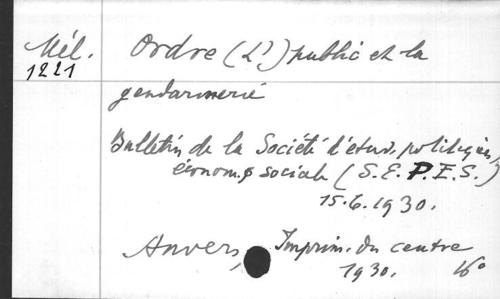 Mél. Ordre (L') public et la
1221
gendarmerie
Bulletin de la Société d'étud. politiques,
économ. & sociale (S.E.P.E.S.)
15.6.1930.
Anvers, Imprim. du centre
1930. 16°